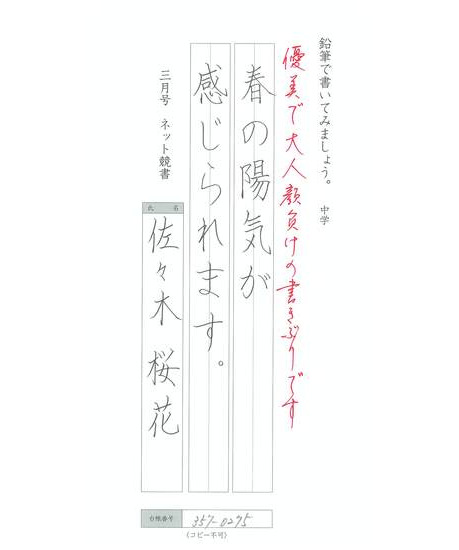 鉛筆で書いてみましょう。 中学
優美で大人顔負けの書きぶりです
春の陽気が
感じられます。
三月号 ネット競書
氏 名
佐々木 桜花
台帳番号 357-0275
(コピー不可)